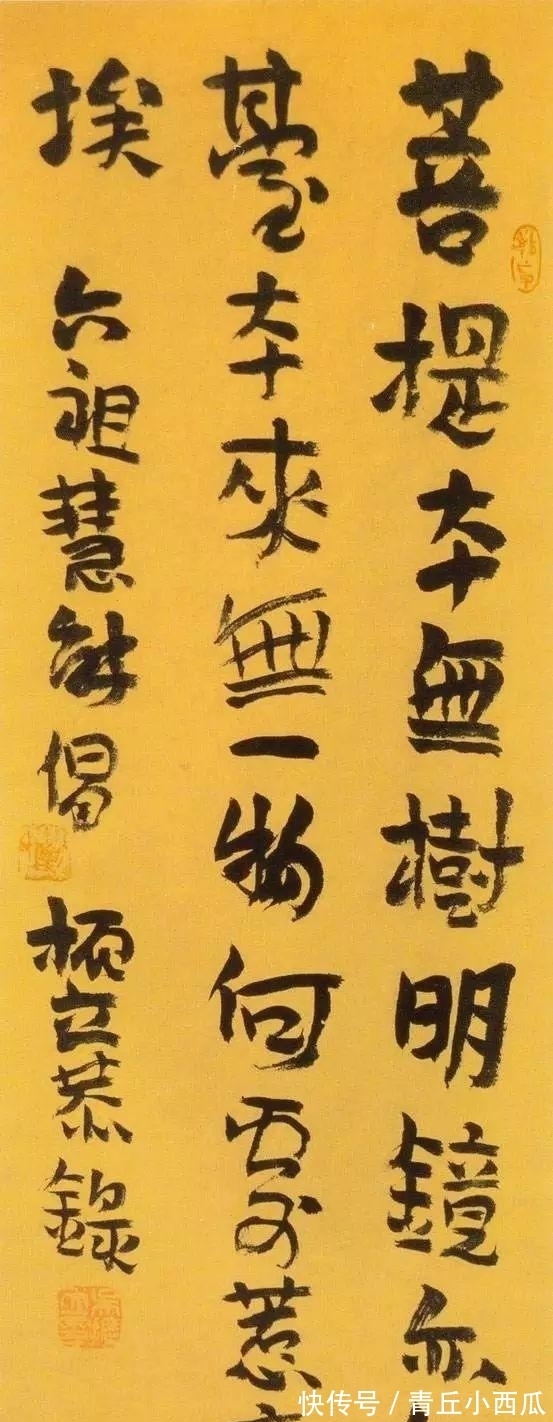 菩提本無樹明鏡亦
臺本來無一物何處惹
埃 六祖慧能偈 立恭錄
快传号 / 青丘小西瓜